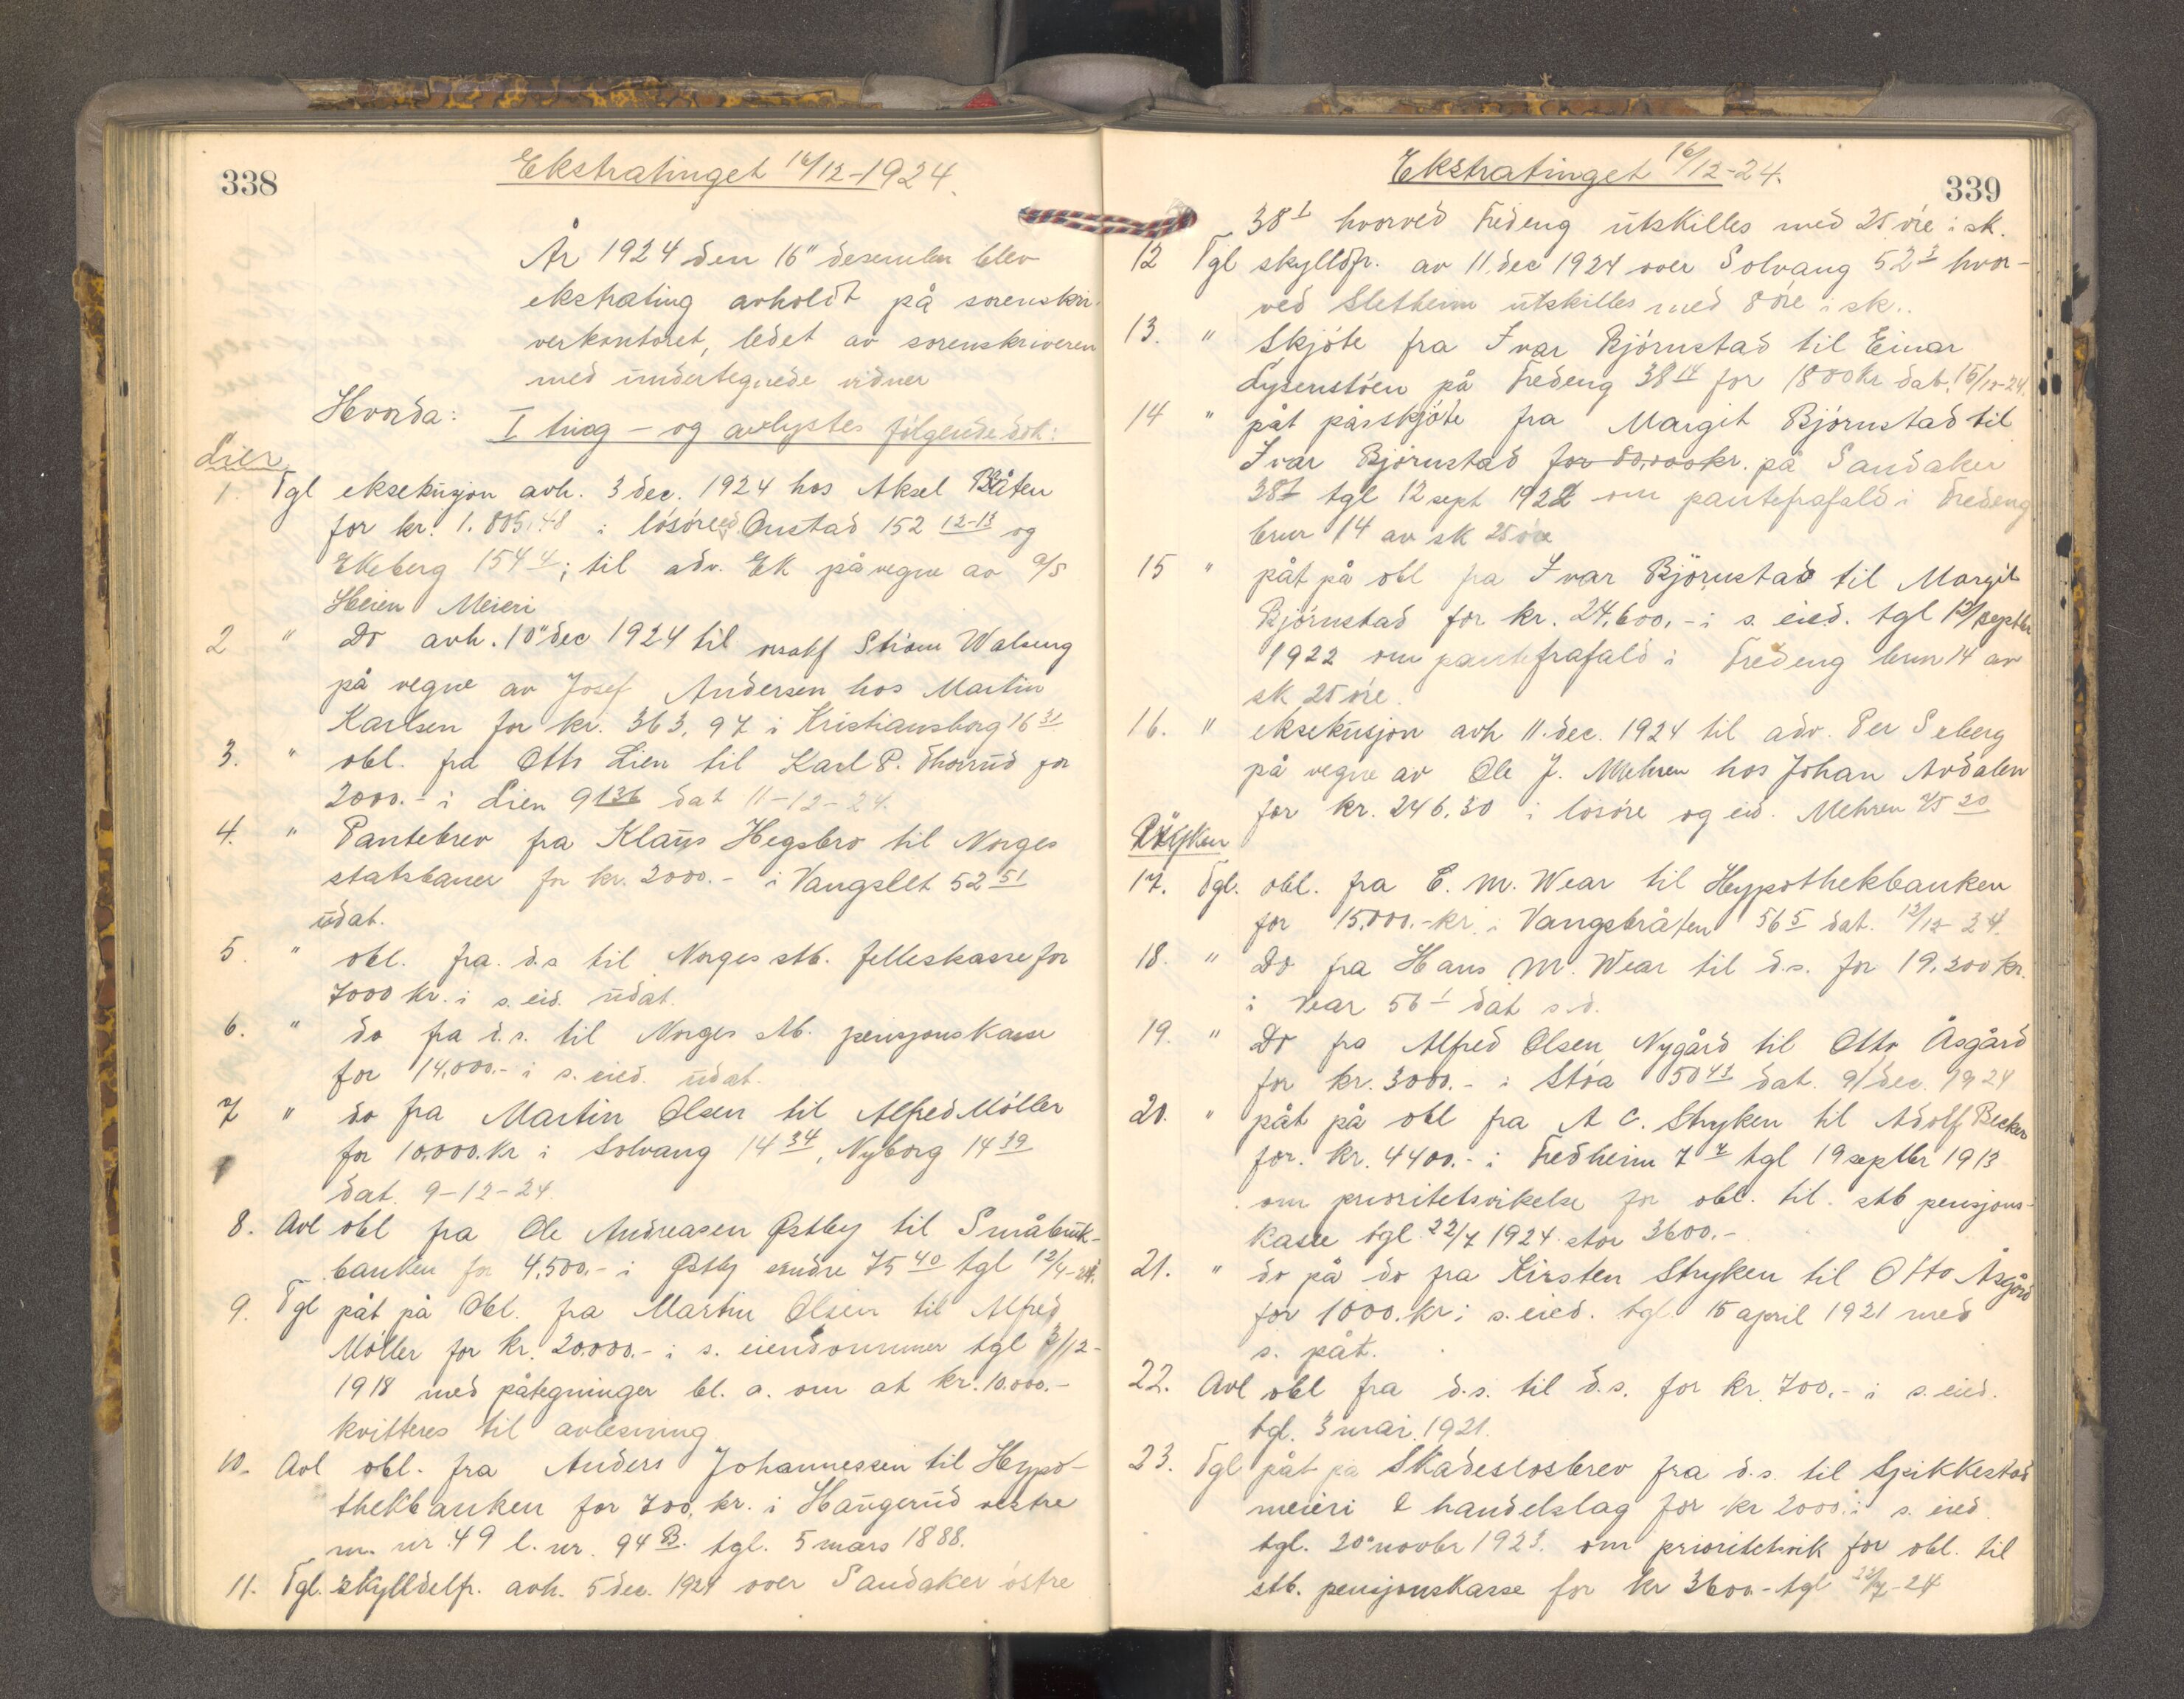 338
Ekstratinget 16/12-1924.
År 1924 den 16" desember blev
ekstrating avholdt på sorenskri-
verkontoret, ledet av sorenskriveren
med undertegnede vidner
Hvorda:
I ting- og avlystes følgende dok:
Lier
1. Tgl eksekusjon avh. 3 dec. 1924 hos Aksel Bråten
for kr. 1.805,48 i løsøre Onstad 152 12-13 og
Ekeberg 154 4; til adv. Ek på vegne av a/s
Heien Meieri
2 " Do avh. 10" dec 1924 til Strøm Walseng
på vegne av Josef Andersen hos Martin
Karlsen for kr. 363,97 i Kristiansborg 16 31
3. " obl. fra Otto Lien til Karl P. Thorrud for
2000.- i Lien 91 36 dat 11-12-24.
4. " Pantebrev fra Klaus Hegsbro til Norges
statsbaner for kr. 2000.- i Vangslet 52 51
udat.
5. " obl. fra. d.s til Norges stb. felleskasse for
7000 kr. i s. eid. udat.
6. " do fra d.s. til Norges stb. pensjonskasse
for 14,000.- i s. eied. udat.
7 " do fra Martin Olsen til Alfred Möller
for 10,000.kr i Solvang 14 34, Nyborg 14 39
dat. 9-12-24.
8. Avl obl fra Ole Andreasen Østby til Småbruk-
banken for 4,500,- i Østby søndre 75 40 tgl 12/4-24.
9. Tgl påt på Obl. fra Martin Olsen til Alfred
Möller for kr. 20.000.- i s. eiendommer tgl 3/12-
1918 med påtegninger bl. a. om at kr. 10.000.-
kvitteres til avlesning.
10. Avl obl. fra Anders Johannessen til Hypo-
thekbanken for 700, kr. i Haugerud vestre
m. nr. 49 l. nr. 94 B. tgl. 5 mars 1888.
11. Tgl. skylddelfr. avh. 5 dec. 1924 over Sandaker østre
Ekstratinget 16/12-24.
339
38 1 hvorved Fredeng utskilles med 25 øre i sk.
12 Tgl skylldfr. av 11. dec 1924 over Solvang 52 3 hvor-
ved Sletheim utskilles med 8 øre i sk..
13. " Skjöte fra Ivar Bjørnstad til Einar
Lysenstøen på Fredeng 38 14 for 1800 kr dat. 15/12-24.
14 " påt på skjöte fra Margit Bjørnstad til
Ivar Bjørnstad for 80,000kr. på Sandaker
38 1 tgl 12 sept 1922 om pantefrafald i Fredeng
brnr 14 av sk 25 øre
15 " påt på obl fra Ivar Bjørnstad til Margit
Bjørnstad for kr. 24,600,- i s. eied. tgl 12/septbr
1922 om pantefrafald i Fredeng brnr 14 av
sk 25 øre.
16. " eksekusjon avh 11. dec. 1924 til adv. Per Seberg
på vegne av Ole J. Mehren hos Johan Avdalen
for kr. 246,30 i løsøre og eid. Mehren 75 20
Røyken
17. Tgl. obl. fra E. M. Wear til Hypothekbanken
for 15,000.- kr. i Vangsbråten 56 5 dat. 12/12-24.
18. " Do fra Hans M. Wear til d.s. for 19,300 kr.
i Vear 56 1 dat s.d.
19. " Do fra Alfred Olsen Nygård til Otto Åsgård
for kr. 3000.- i Stöa 50 43 dat. 9/dec. 1924
20. " påt på obl fra A C. Stryken til Adolf Becker
for. kr. 4400.- i Fredheim 7 7 tgl 19 septbr 1913
om prioritetsvikelse for obl. til. stb pensjons-
kasse tgl. 22/7 1924. stor 3600.-
21. " do på do fra Kirsten Stryken til Otto Åsgård
for 1000. kr i s. eied. tgl. 15 april 1921 med
s. påt.
22. Avl obl fra d.s. til d.s. for kr. 700.- i s. eied.
tgl. 3 mai. 1921.
23. Tgl påt på Skadesløsbrev fra d.s. til Spikkestad
meieri & handelslag for kr 2000.- i s. eied.
tgl. 20" novbr 1923. om prioritetsvik for obl. til
stb. pensjonskasse for kr 3600.- tgl 22/7-24